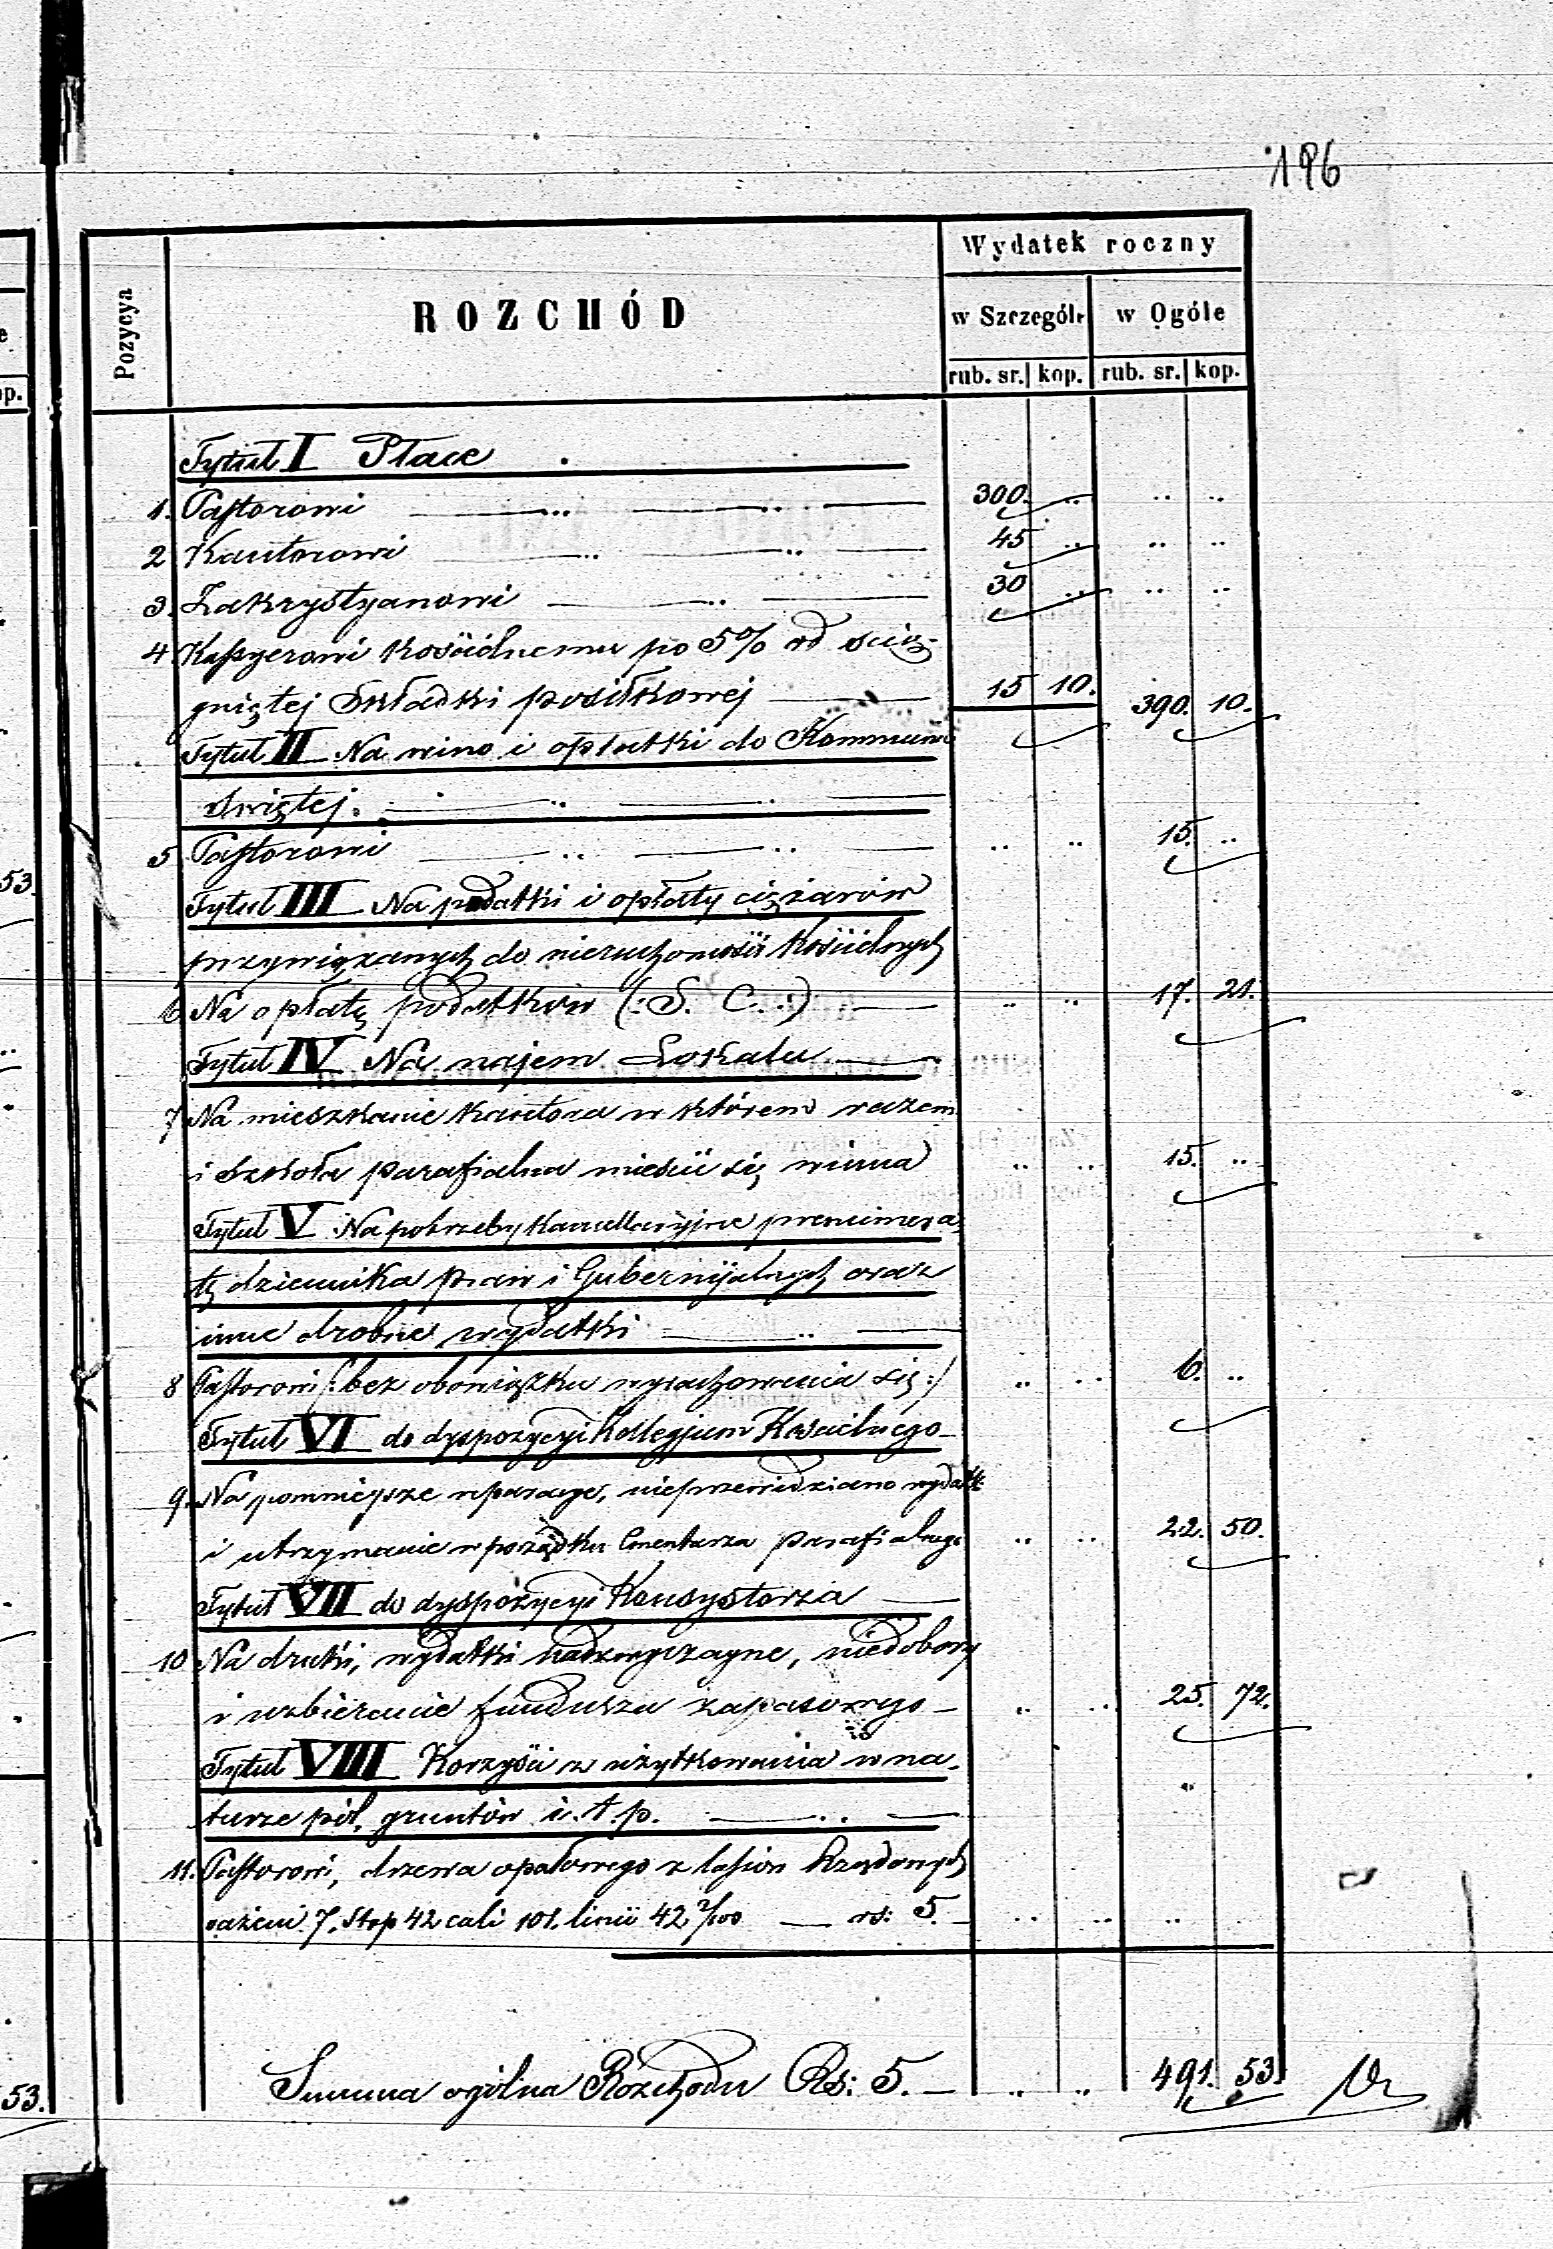 196
Wydatek roczny
Pozycya
ROZCHÓD
w Szczególe w Ogóle
rub. sr. kop. rub. sr. kop.
Tytuł I Płace
1. Pastorowi 300. .. .. ..
2 Kantorowi 45 .. .. ..
3. Zakrystyanowi 30 .. .. ..
4 Kassyerowi kościelnemu po 5% od ścią-
gniętej Składki posiłkowej 15 10. 390. 10.
Tytuł II Na wino i opłatki do Kommunii
Świętej.
5 Pastorowi .. .. 15. ..
Tytuł III Na podatki i opłaty ciężarów
przywiązanych do nieruchomości Kościelnych
6 Na opłatę podatków (:S. C.:) .. .. 17. 21.
Tytuł IV Na najem Lokalu
7 Na mieszkanie kantora w którem razem
i Szkoła parafialna mieścić się winna .. .. 15. ..
Tytuł V Na potrzeby kancellaryjne prenumera-
tę dziennika praw i Gubernijalnych oraz
inne drobne wydatki
8 Pastorowi /:bez obowiązku wyrachowania się:/ .. .. 6. ..
Tytuł VI do dyspozycyi Kollegjum Kościelnego
9. Na pommiejsze reparacye, nieprzewidziane wydatk
i utrzymanie w porządku Cmentarza parafialnego .. .. 22. 50.
Tytuł VII do dyspozycyi Konsystorza
10 Na druki, wydatki nadzwyczajne, niedobory
i uzbieranie funduszu zapasowego .. .. 25. 72.
Tytuł VIII Korzyści z użytkowania w na-
turze pól, gruntów i. t. p.
11. Pastorowi, drzewa opałowego z lasów Rządowych
sążeni 7, stóp 42 cali 101. linii 42 7/100 rs: 5. .. .. ..
Summa ogólna Rozchodu Rs: 5. .. .. 491. 53.
53.
53.